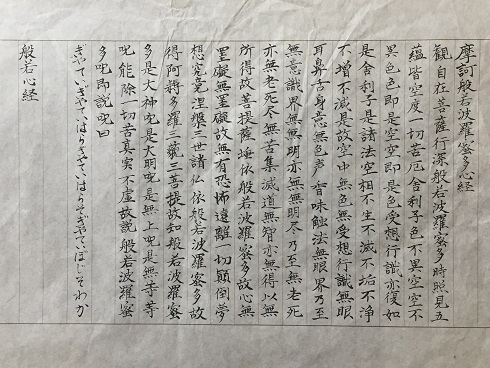 摩訶般若波羅蜜多心経
観自在菩薩行深般若波羅蜜多時照見五
蘊皆空度一切苦厄舎利子色不異空空不
異色色即是空空即是色受想行識亦復如
是舎利子是諸法空相不生不滅不垢不浄
不増不減是故空中無色無受想行識無眼
耳鼻舌身意無色声香味触法無眼界乃至
無意識界無無明亦無無明尽乃至無老死
亦無老死尽無苦集滅道無智亦無得以無
所得故菩提薩埵依般若波羅蜜多故心無
罣礙無罣礙故無有恐怖遠離一切顛倒夢
想究竟涅槃三世諸仏依般若波羅蜜多故
得阿耨多羅三藐三菩提故知般若波羅蜜
多是大神呪是大明呪是無上呪是無等等
呪能除一切苦真実不虚故説般若波羅蜜
多呪即説呪曰
ぎやていぎやていはらぎやていはらそぎやていぼじそわか
般若心経